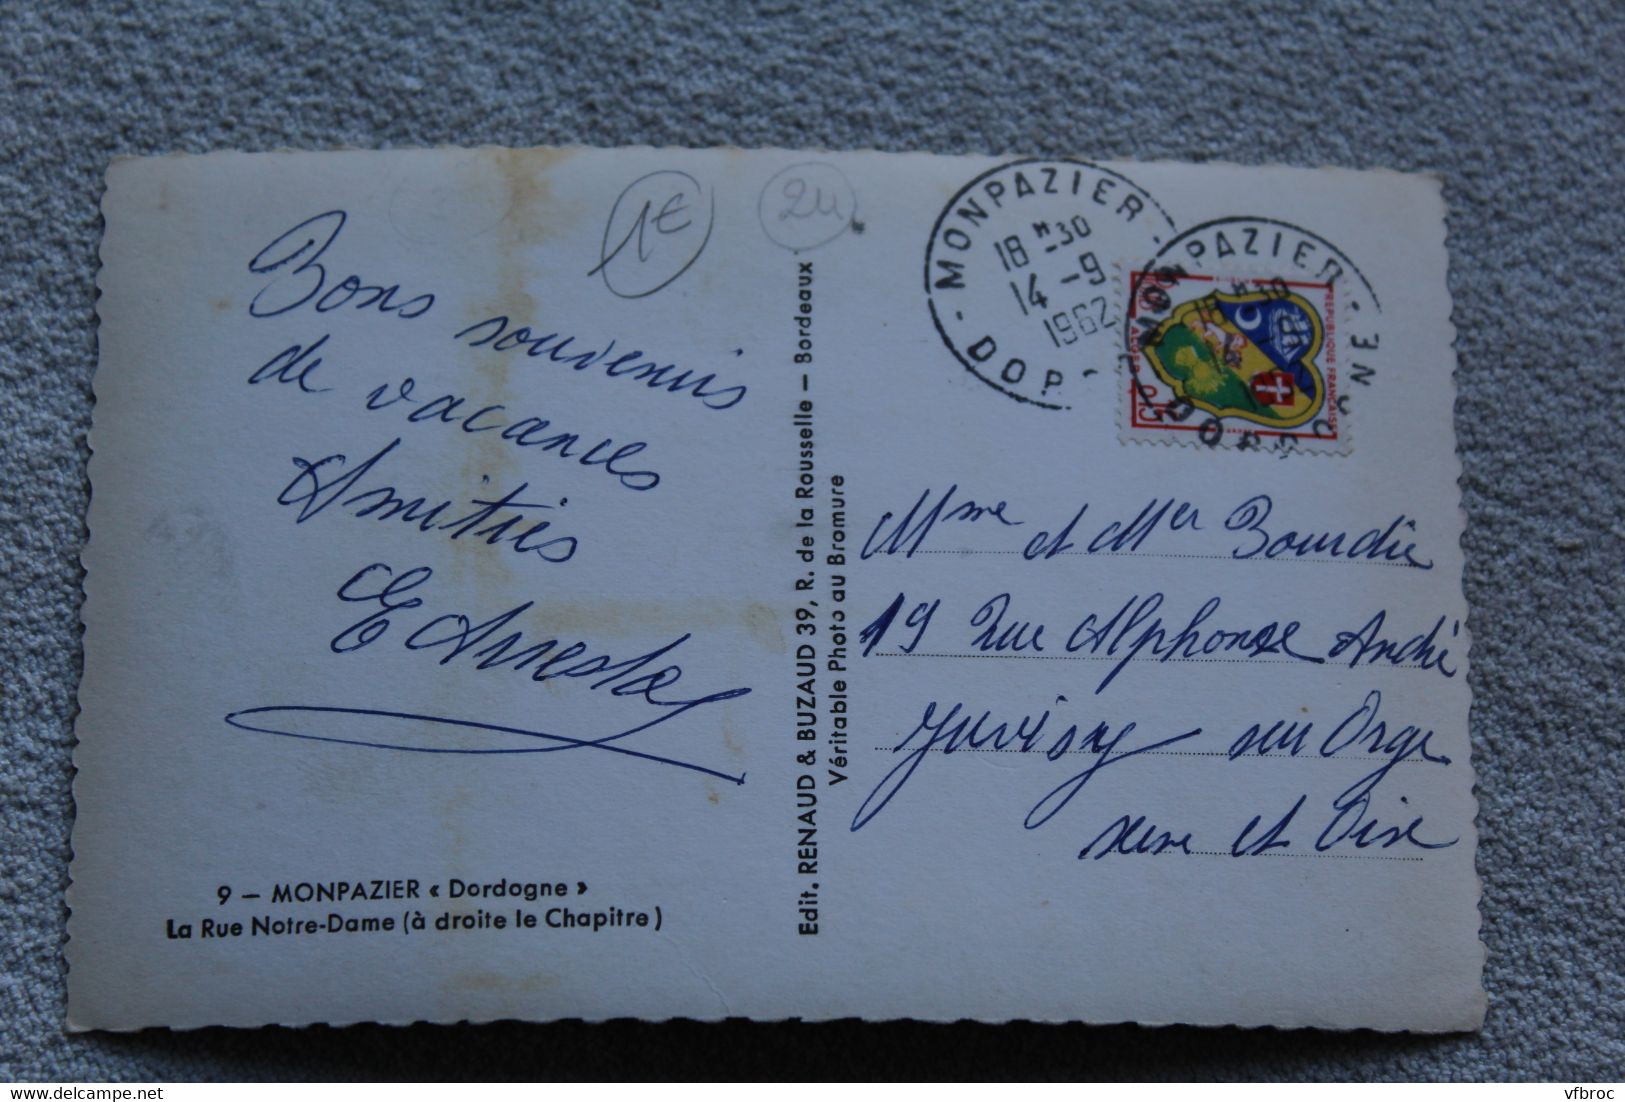 1€
24
Bons souvenirs
de vacances
Amitiés
9 — MONPAZIER « Dordogne »
La Rue Notre-Dame (à droite le Chapitre)
Edit. RENAUD & BUZAUD 39, R. de la Rousselle — Bordeaux
Véritable Photo au Bromure
MONPAZIER
18 H30
14 -9
1962
DOR
MONPAZIER
DORDOGNE
REPUBLIQUE FRANÇAISE
ALGER
0,15
Mme et Mer Bourdie
19 Rue Alphonse André
Juvisy sur Orge
seine et Oise
delcampe.net
vfbroc